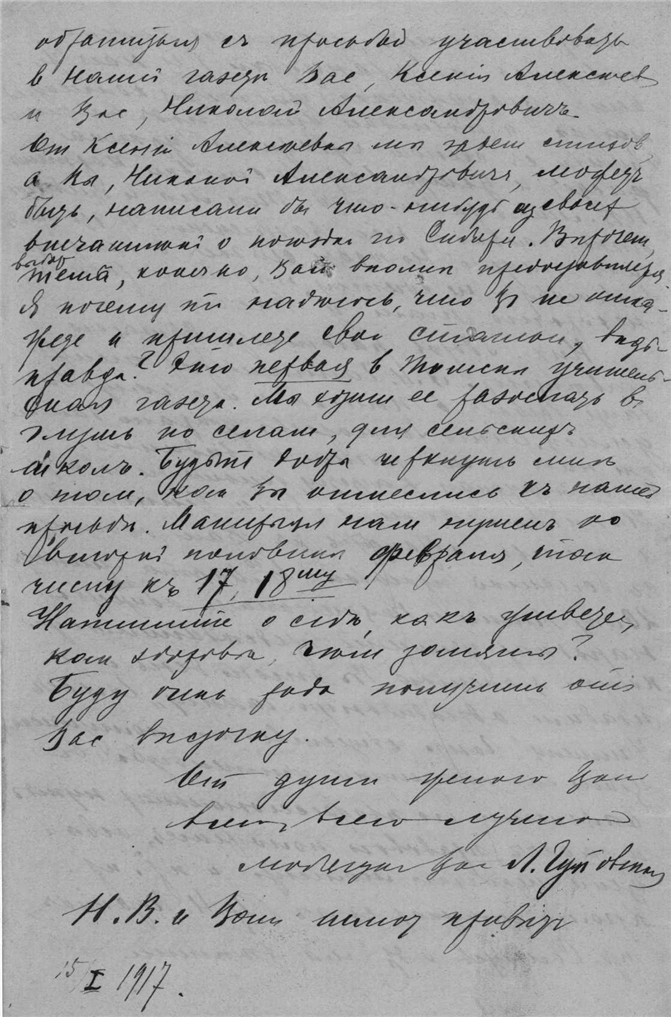 обратиться съ просьбой участвовать
в нашей газете Вас, Ксения Алексеев
и Вас, Николай Александровичъ.
От Ксении Алексеевны мы ждем стихов,
а Вы, Николай Александрович, может
быть, написали бы что-нибудь из своих
впечатлений о поездке по Сибири. Впрочем,
выбор
темы, конечно, Вам вполне предоставляется
Я почему то надеюсь, что Вы не отка-
жете и пришлете свои статьи, ведь
правда? Это первая в Томске учитель-
ская газета. Мы будем ее рассылать в
глушь по селам, для сельских
школъ. Будьте добры черкнуть мне
о том, как Вы отнеслись къ нашей
просьбе. Материал нам нужен во
второй половине февраля, так
числу къ 17, 18му
Напишите о себе, какъ живете,
как здоровье, чем заняты?
Буду очень рада получить от
Вас весточку.
От души желаю Вам
всего, всего лучшего
Вас Л.
Н. В. и Вам шлет привет
15/I 1917.